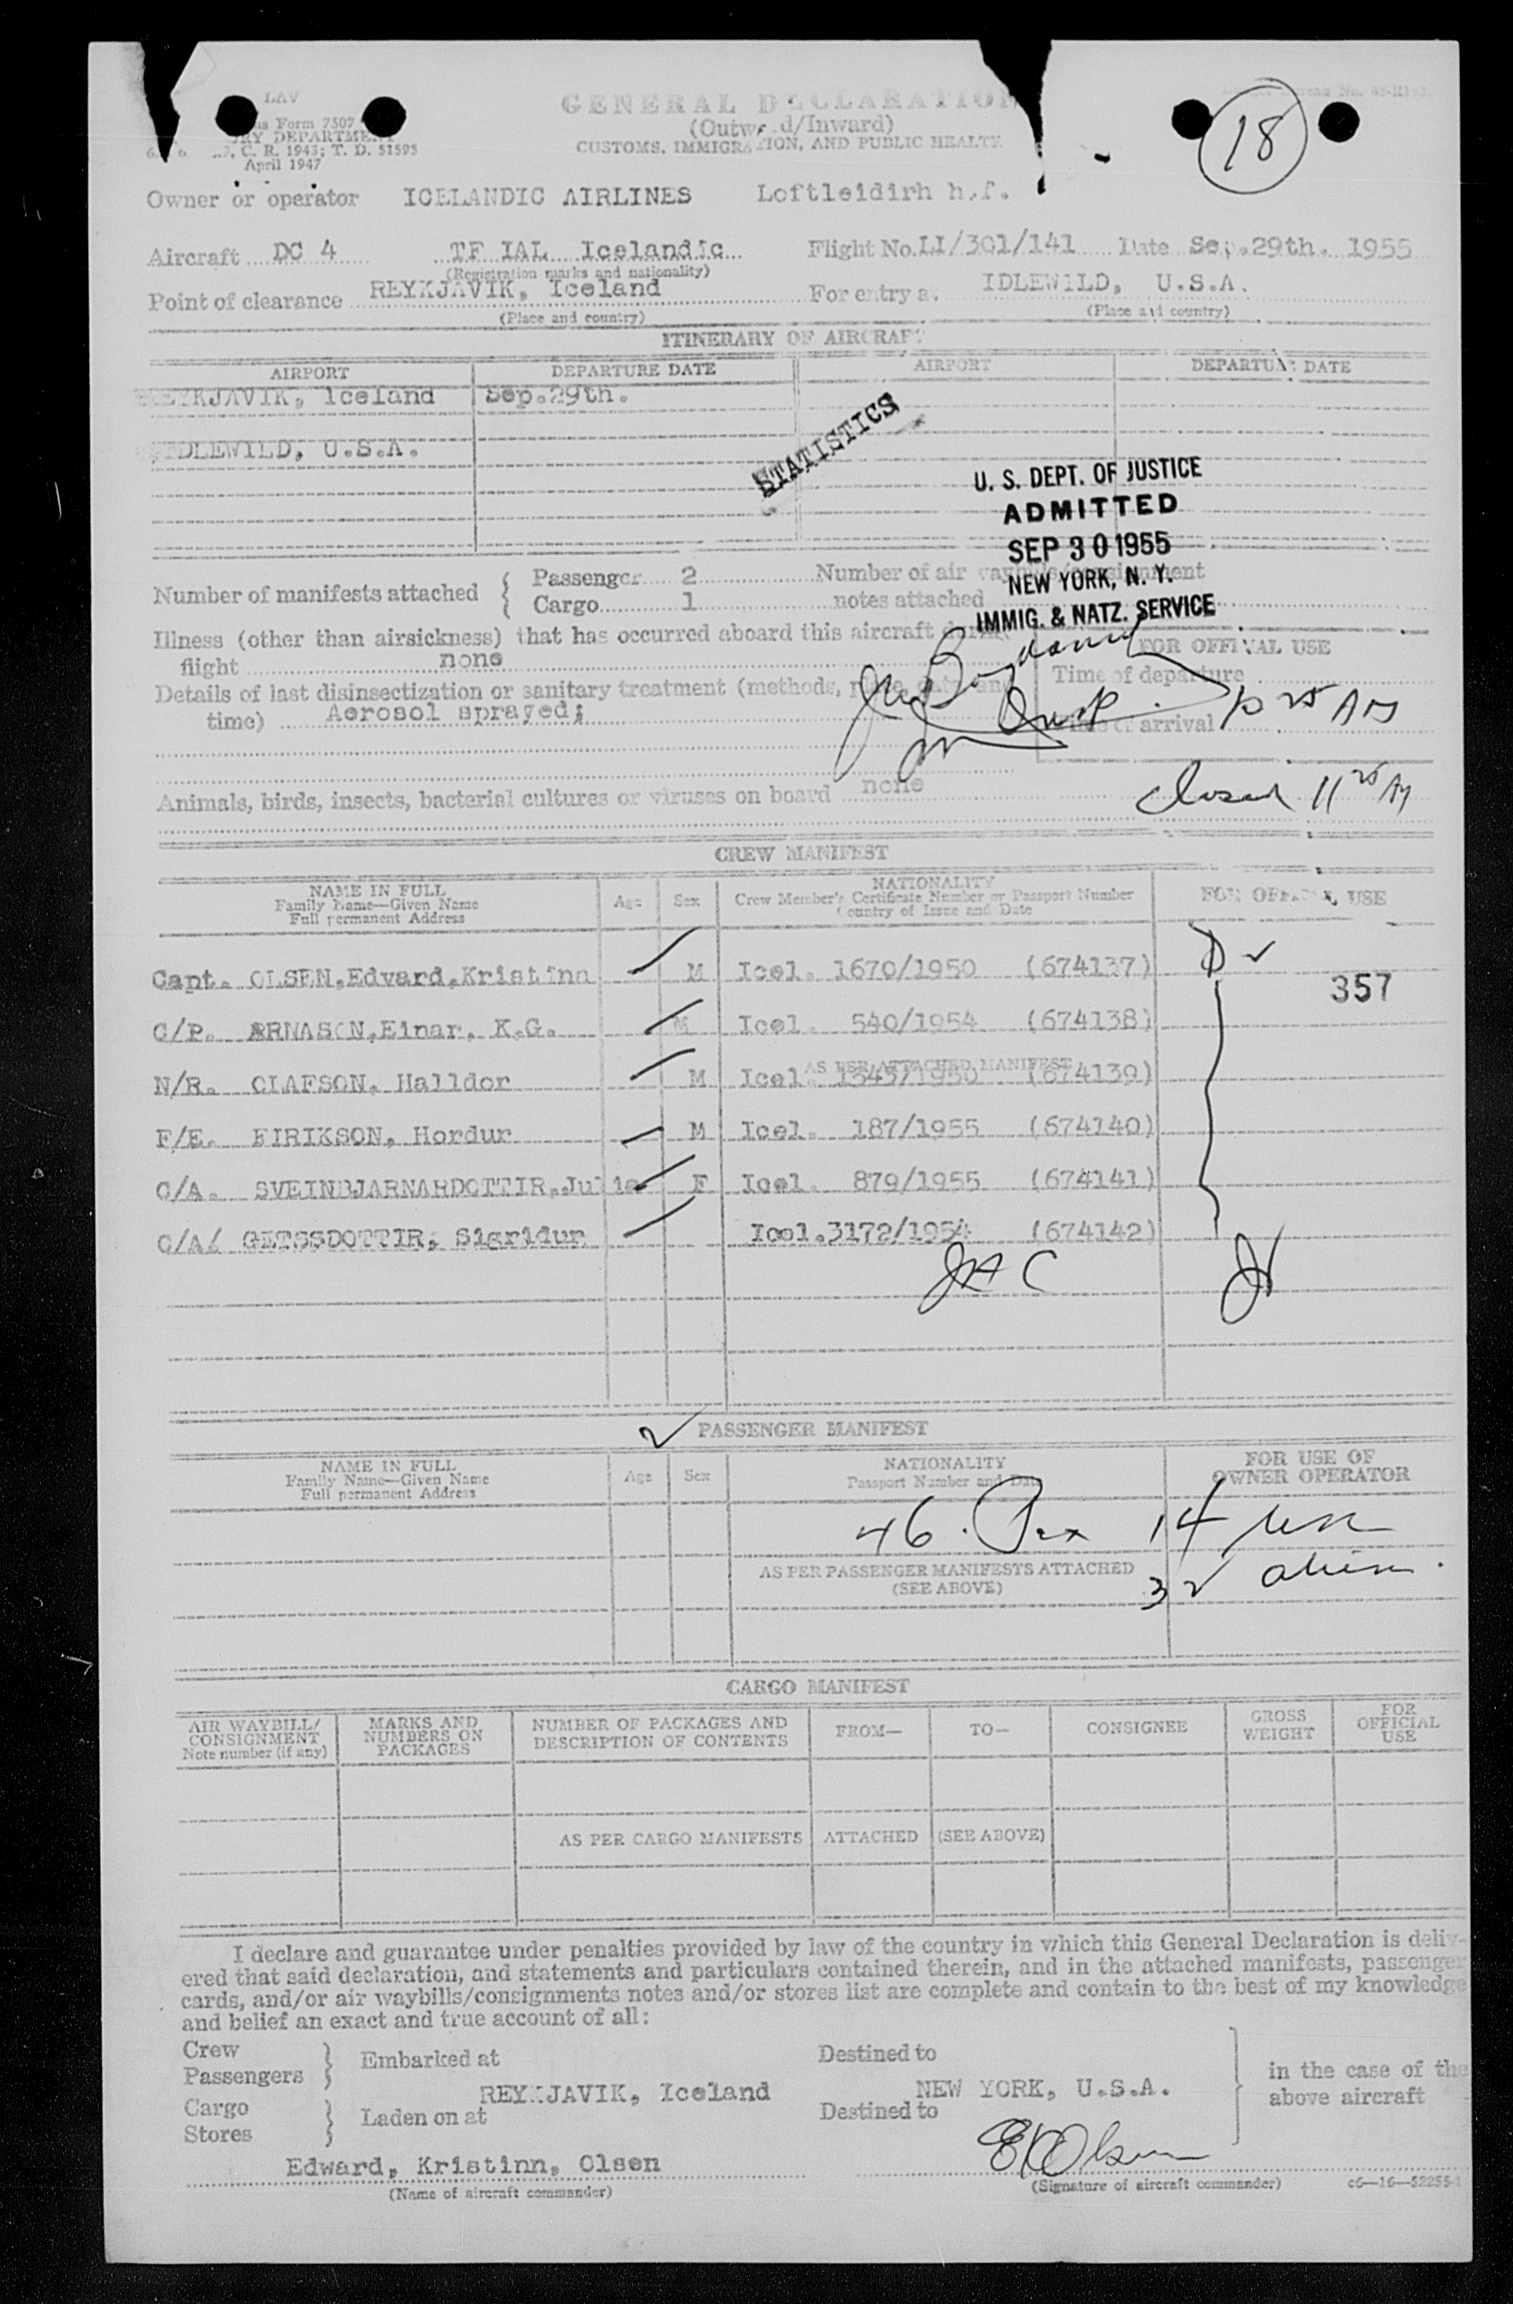 LAV
Form 7507
GENERAL DECLARATION
18
DEPARTMENT
(Outward/Inward)
C. R. 1943; T. D. 51595
CUSTOMS, IMMIGRATION, AND PUBLIC HEALTH
April 1947
Owner or operator ICELANDIC AIRLINES Loftleidirh h.f.
Aircraft DC 4 TF IAL Icelandic Flight No. LI/301/141 Date Sep.29th. 1955
(Registration marks and nationality)
Point of clearance REYKJAVIK, Iceland For entry at IDLEWILD, U.S.A.
(Place and country) (Place and country)
ITINERARY OF AIRCRAFT
AIRPORT DEPARTURE DATE AIRPORT DEPARTURE DATE
REYKJAVIK, Iceland Sep.29th.
IDLEWILD, U.S.A.
STATISTICS
U. S. DEPT. OF JUSTICE
ADMITTED
SEP 30 1955
NEW YORK, N. Y.
IMMIG. & NATZ. SERVICE
Number of manifests attached { Passenger 2 Number of air waybills/consignment
Cargo 1 notes attached
Illness (other than airsickness) that has occurred aboard this aircraft during
flight none
FOR OFFICIAL USE
Details of last disinsectization or sanitary treatment (methods, place, date and Time of departure
time) Aerosol sprayed; arrival 10 25 AM
Animals, birds, insects, bacterial cultures or viruses on board none
Closed 11 25 AM
CREW MANIFEST
NAME IN FULL Age Sex NATIONALITY FOR OFFICIAL USE
Family Name—Given Name Crew Member's Certificate Number or Passport Number
Full permanent Address Country of Issue and Date
Capt. OLSEN,Edvard,Kristinn M Icel. 1670/1950 (674137)
357
C/P. ARNASON,Einar, K.G. M Icel. 540/1954 (674138)
AS PER ATTACHED MANIFEST
N/R. OLAFSON, Halldor M Icel. 1343/1950 (674139)
F/E. EIRIKSON, Hordur M Icel. 187/1955 (674140)
C/A. SVEINBJARNARDOTTIR,Julia F Icel. 879/1955 (674141)
C/A/ GETSSDOTTIR, Sigridur Icel.3172/1954 (674142)
PASSENGER MANIFEST
NAME IN FULL Age Sex NATIONALITY FOR USE OF
Family Name—Given Name Passport Number and Date OWNER OPERATOR
Full permanent Address
46. Pax 14
AS PER PASSENGER MANIFESTS ATTACHED
(SEE ABOVE)
32 aliens.
CARGO MANIFEST
AIR WAYBILL/ MARKS AND NUMBER OF PACKAGES AND FROM— TO— CONSIGNEE GROSS FOR
CONSIGNMENT NUMBERS ON DESCRIPTION OF CONTENTS WEIGHT OFFICIAL
Note number (if any) PACKAGES USE
AS PER CARGO MANIFESTS ATTACHED (SEE ABOVE)
I declare and guarantee under penalties provided by law of the country in which this General Declaration is deliv-
ered that said declaration, and statements and particulars contained therein, and in the attached manifests, passenger
cards, and/or air waybills/consignments notes and/or stores list are complete and contain to the best of my knowledge
and belief an exact and true account of all:
Crew } Embarked at Destined to
Passengers in the case of the
REYKJAVIK, Iceland NEW YORK, U.S.A. above aircraft
Cargo } Laden on at Destined to
Stores
EKOlsen
Edward, Kristinn, Olsen
(Name of aircraft commander) (Signature of aircraft commander) c6—16—52255-1